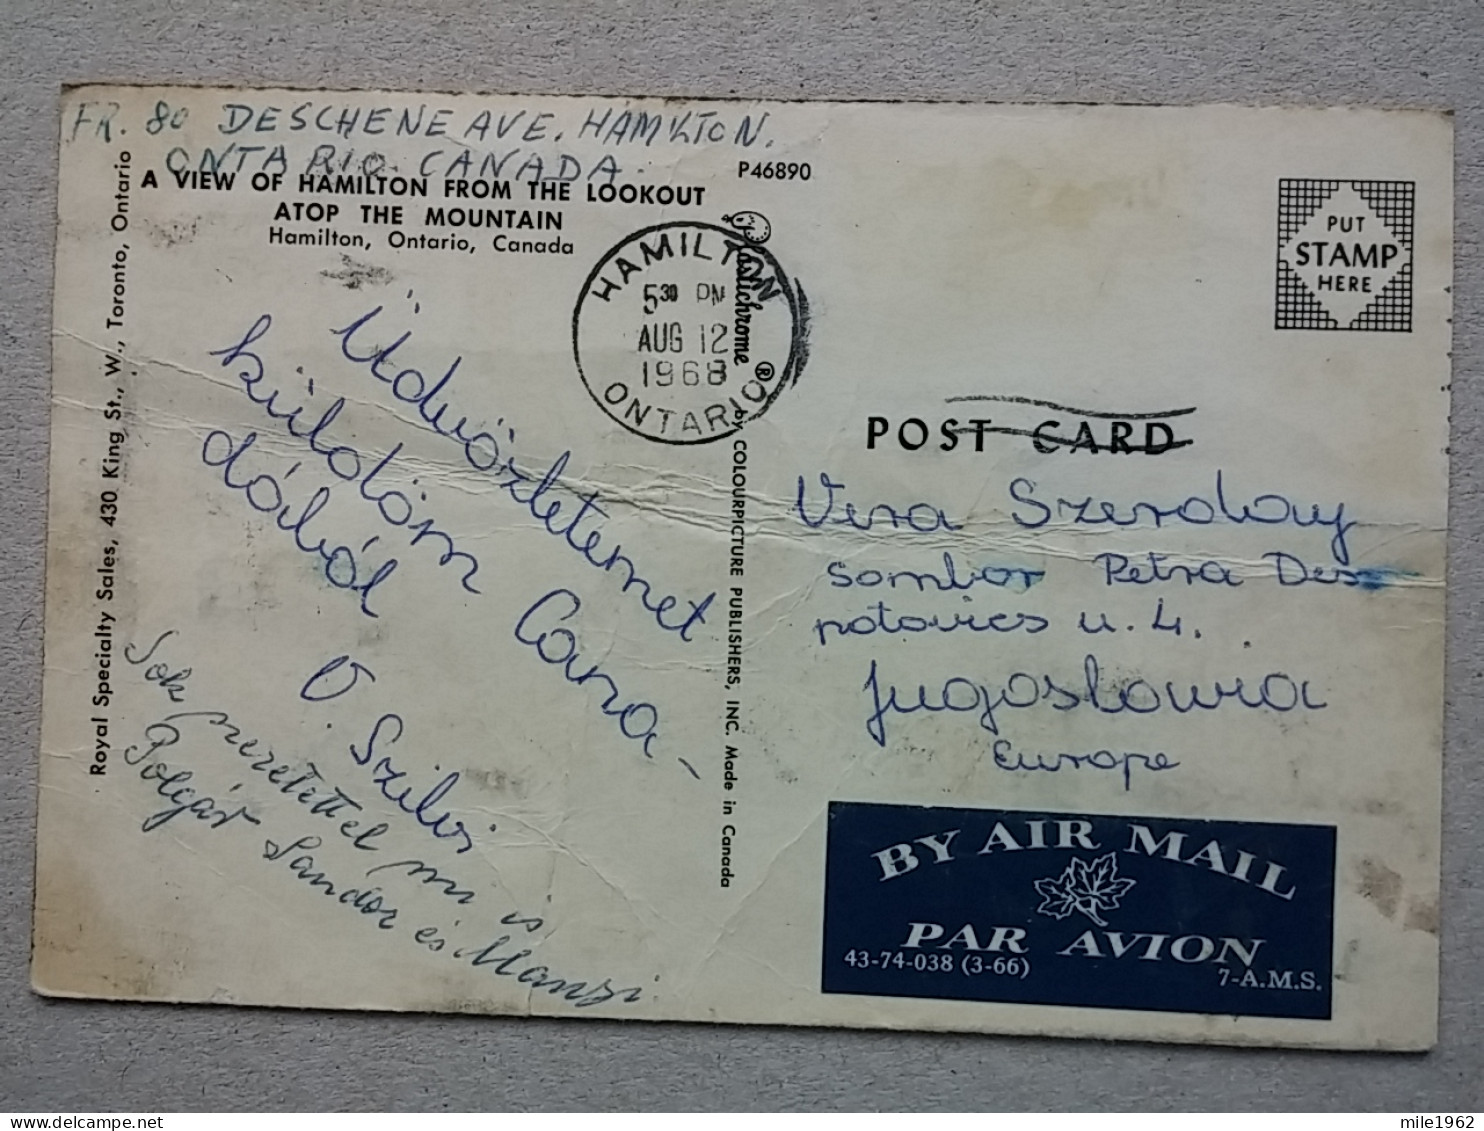 FR. 80 DESCHENE AVE. HAMILTON.
ONTARIO. CANADA.
A VIEW OF HAMILTON FROM THE LOOKOUT
ATOP THE MOUNTAIN
Hamilton, Ontario, Canada
P46890
Royal Specialty Sales, 430 King St., W., Toronto, Ontario
Plastichrome®
by COLOURPICTURE PUBLISHERS, INC. Made in Canada
HAMILTON
5 30 PM
AUG 12
1968
ONTARIO
PUT
STAMP
HERE
POST CARD
Üdvözletemet
küldöm Cana-
dából
O. Szilvi
Sok szeretettel mi is
Polgár Sandor és Manzi.
Vera Szerday
Sombor Petra Des
potovics u. 4.
Jugoslawia
Europe
BY AIR MAIL
PAR AVION
43-74-038 (3-66)
7-A.M.S.
mile1962